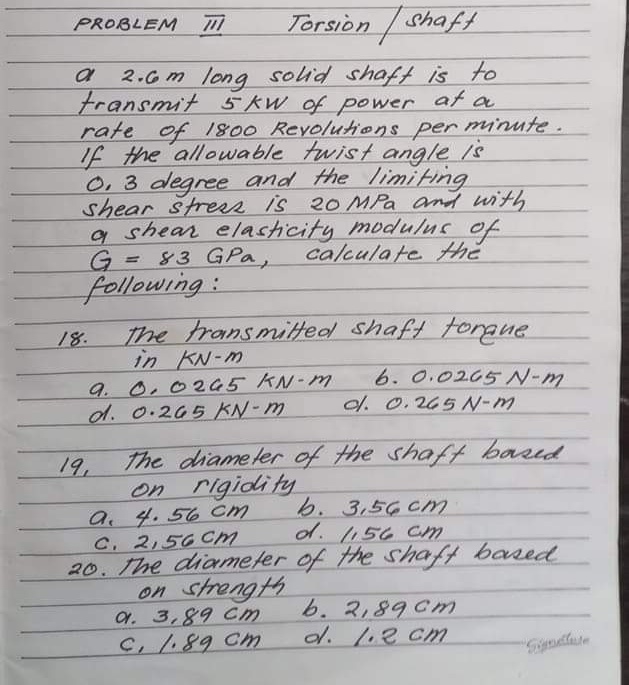 PROBLEM III Torsion / shaft
a 2.6m long solid shaft is to
transmit 5 KW of power at a
rate of 1800 Revolutions per minute.
If the allowable twist angle is
0.3 degree and the limiting
shear stress is 20 MPa and with
a shear elasticity modulus of
G = 83 GPa, calculate the
following:
18. The transmitted shaft torque
in KN-m
a. 0.0265 KN-m b. 0.0265 N-m
d. 0.265 KN-m d. 0.265 N-m
19, The diameter of the shaft based
on rigidity
a. 4.56 cm b. 3,56 cm
c. 2,56 cm d. 1,56 cm
20. The diameter of the shaft based
on strength
a. 3,89 cm b. 2,89 cm
c, 1.89 cm d. 1.2 cm
Signature